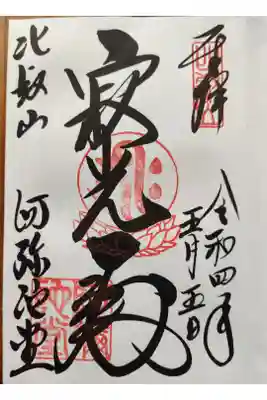 奉拝
令和四年
五月五日
寂光殿
比叡山
阿弥陀堂